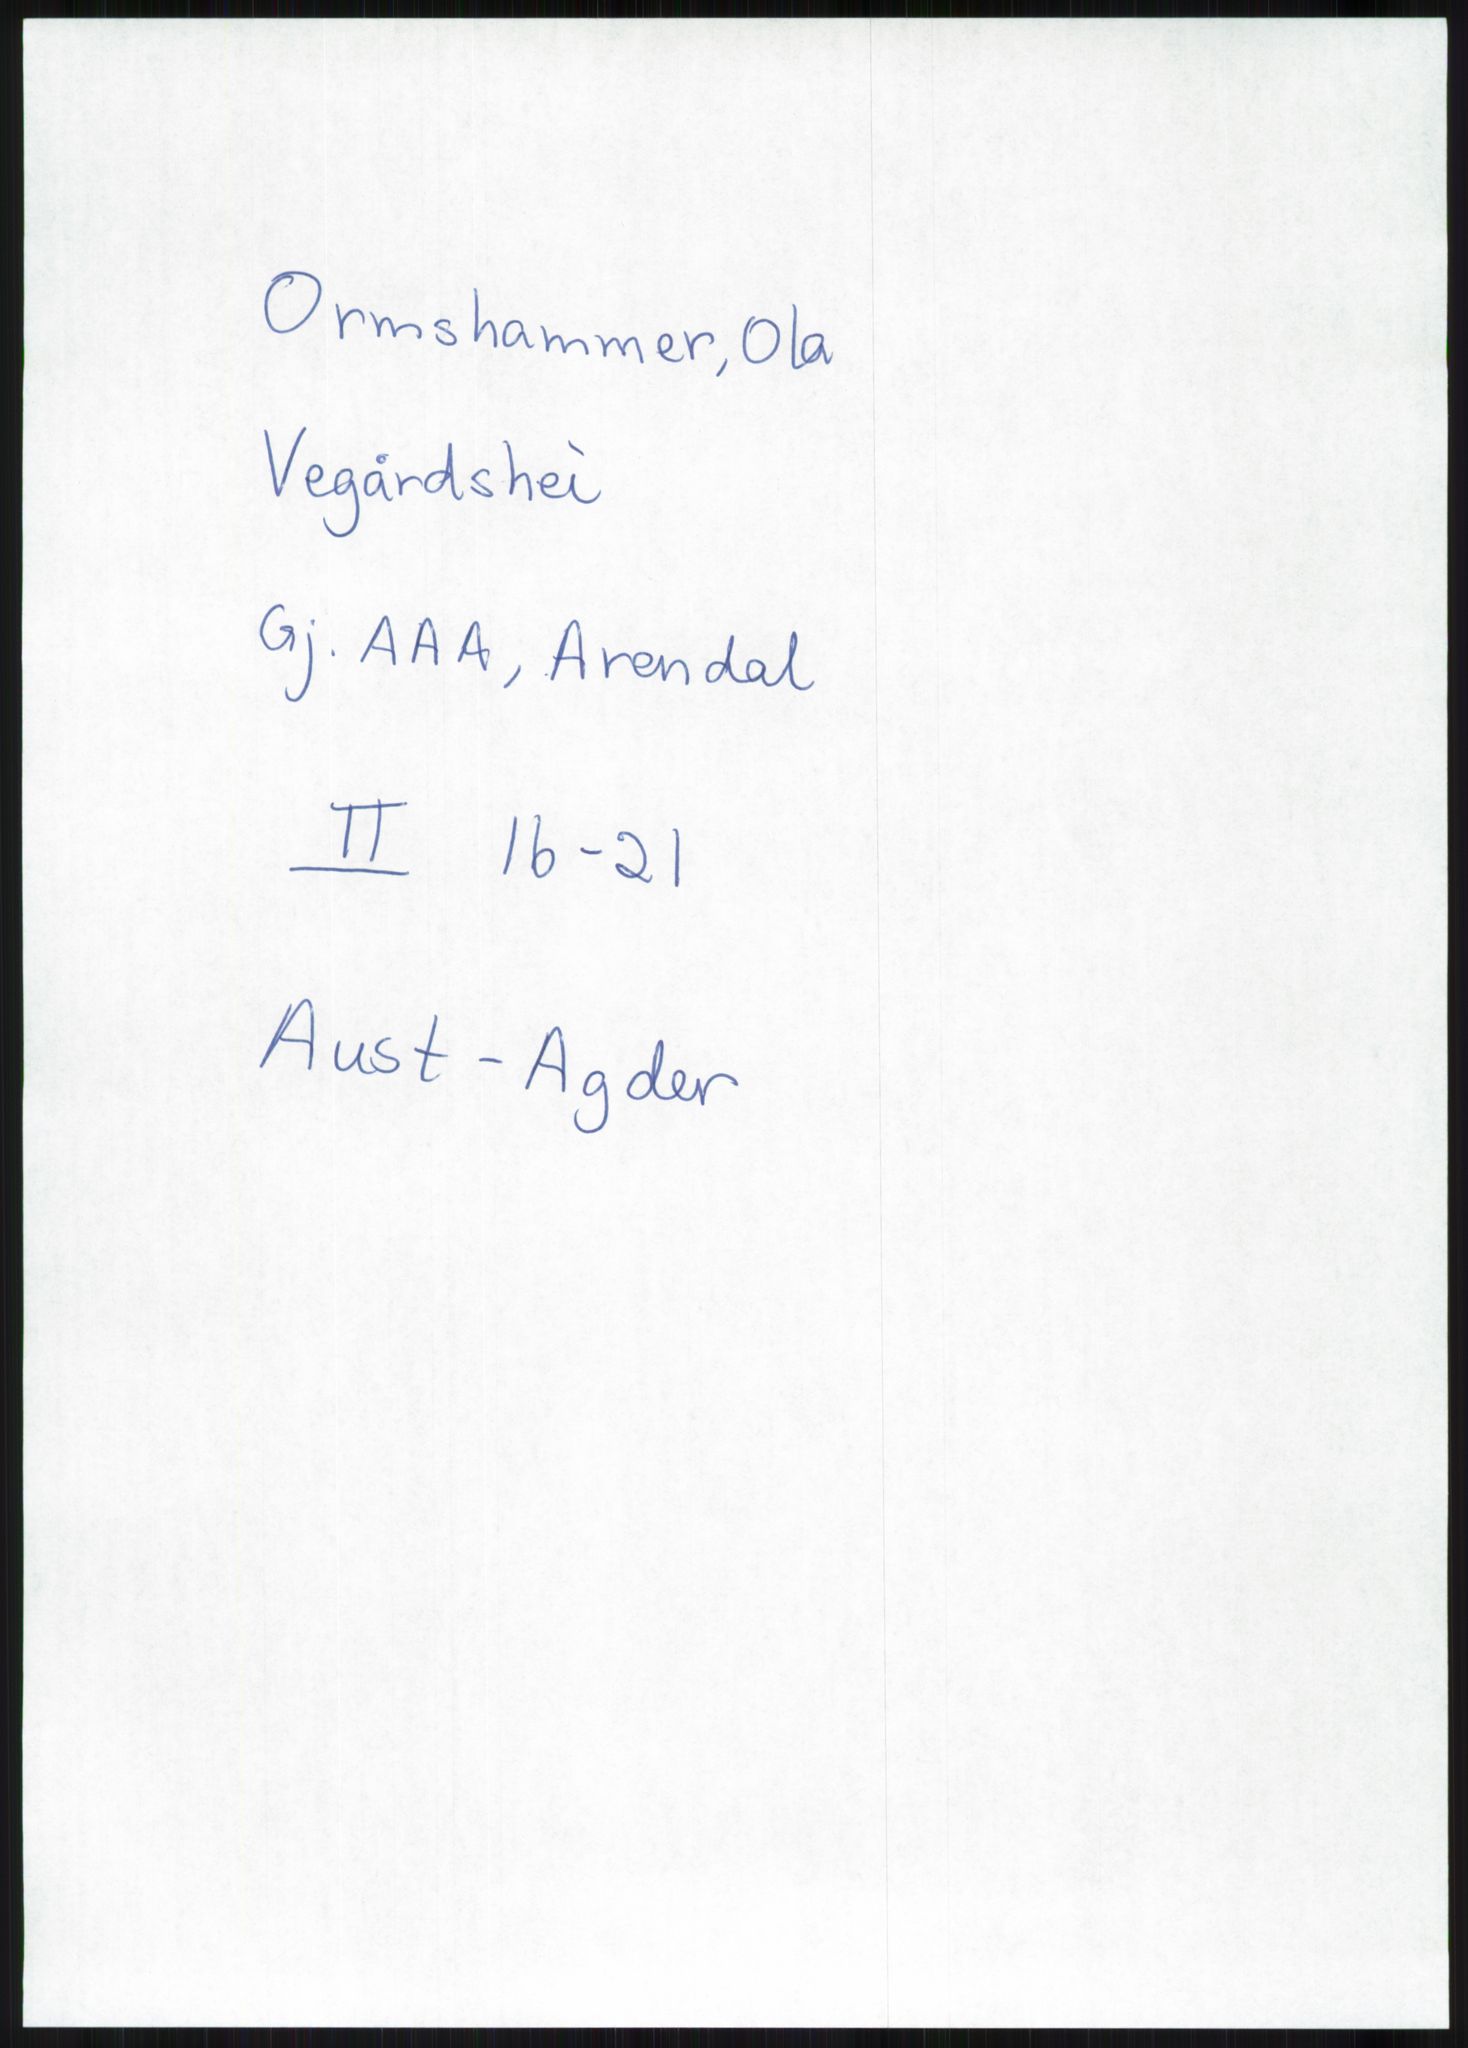 Ormshammer, Ola
Vegårdshei
Gj. AAA, Arendal
II 16-21
Aust-Agder